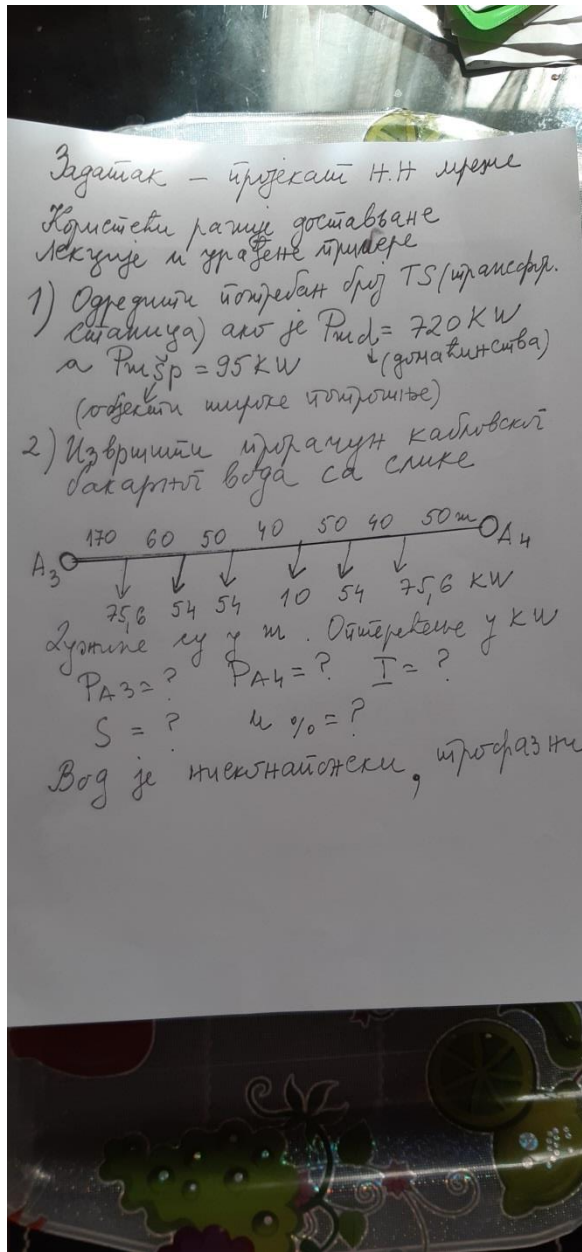 Задатак – пројекат Н.Н мреже
Користећи раније достављане
лекције и урађене примере
1) Одредити потребан број TS (трансфр.
станица) ако је Pmd = 720 KW
(домаћинства)
а Pmšp = 95 KW
(објекти широке потрошње)
2) Извршити прорачун кабловског
бакарног вода са слике
170 60 50 40 50 40 50 m
A3 A4
75,6 54 54 10 54 75,6 KW
Дужине су у m. Оптерећење у KW
PA3 = ? PA4 = ? I = ?
S = ? u % = ?
Вод је нисконапонски, трофазни